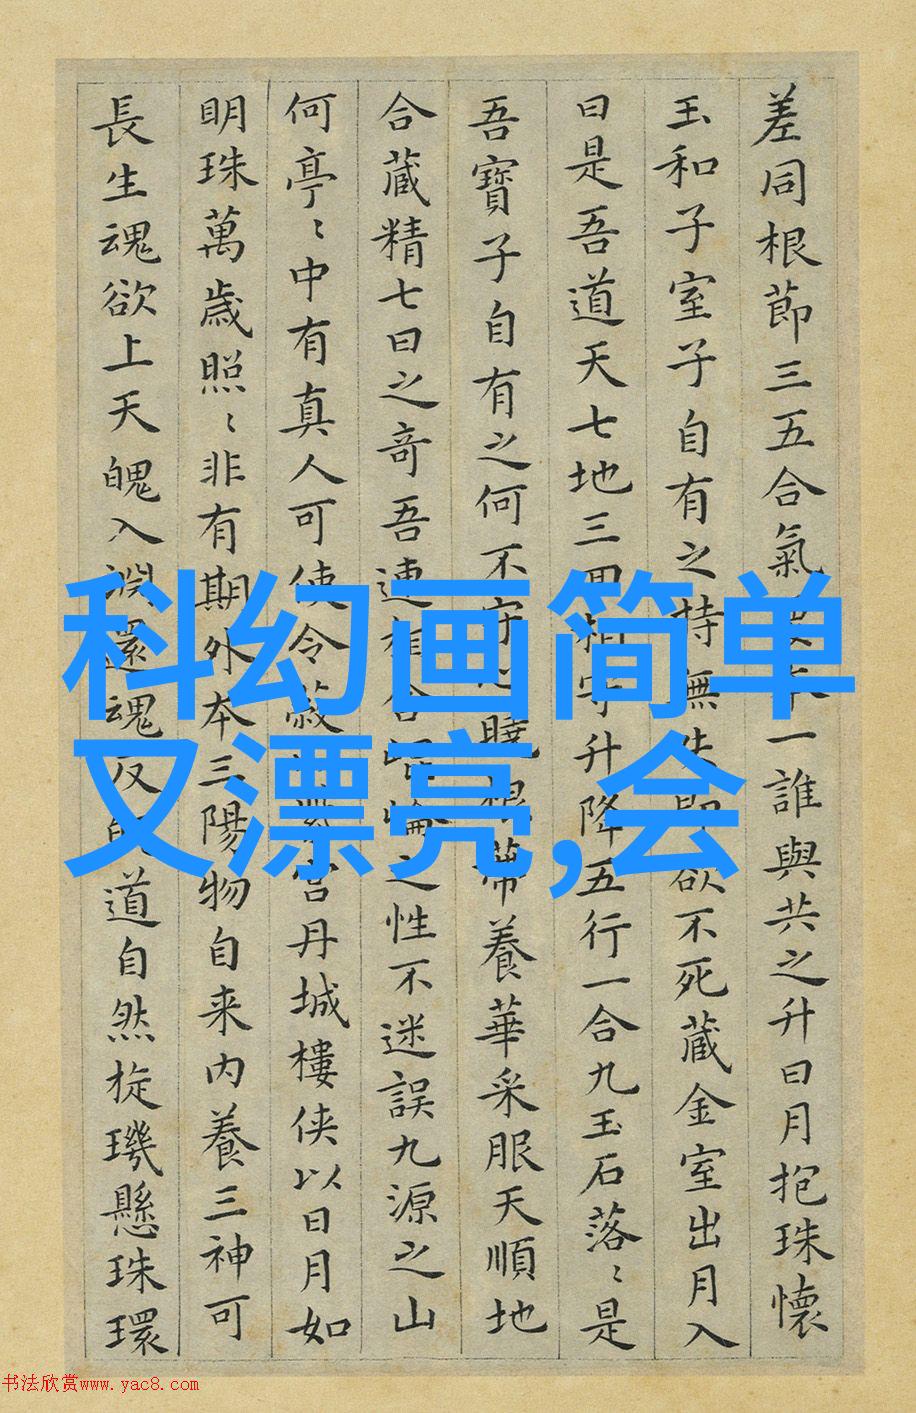 差同根節三五合氣一誰與共之升日月抱珠懷
玉和子室子自有之持無失即欲不死藏金室出月入
日是吾道天七地三升降五行一合九玉石落〻是
吾寶子自有之何不守根蒂養華采服天順地
合藏精七日之奇吾連相合之性不迷誤九源之山
何亭〻中有真人可使令宮丹城樓俠以日月如
明珠萬歲照〻非有期外本三陽物自来内養三神可
長生魂欲上天魄入淵還魂反道自然旋璣懸珠環
科幻画简单
又漂亮,会
书法欣赏www.yac8.com